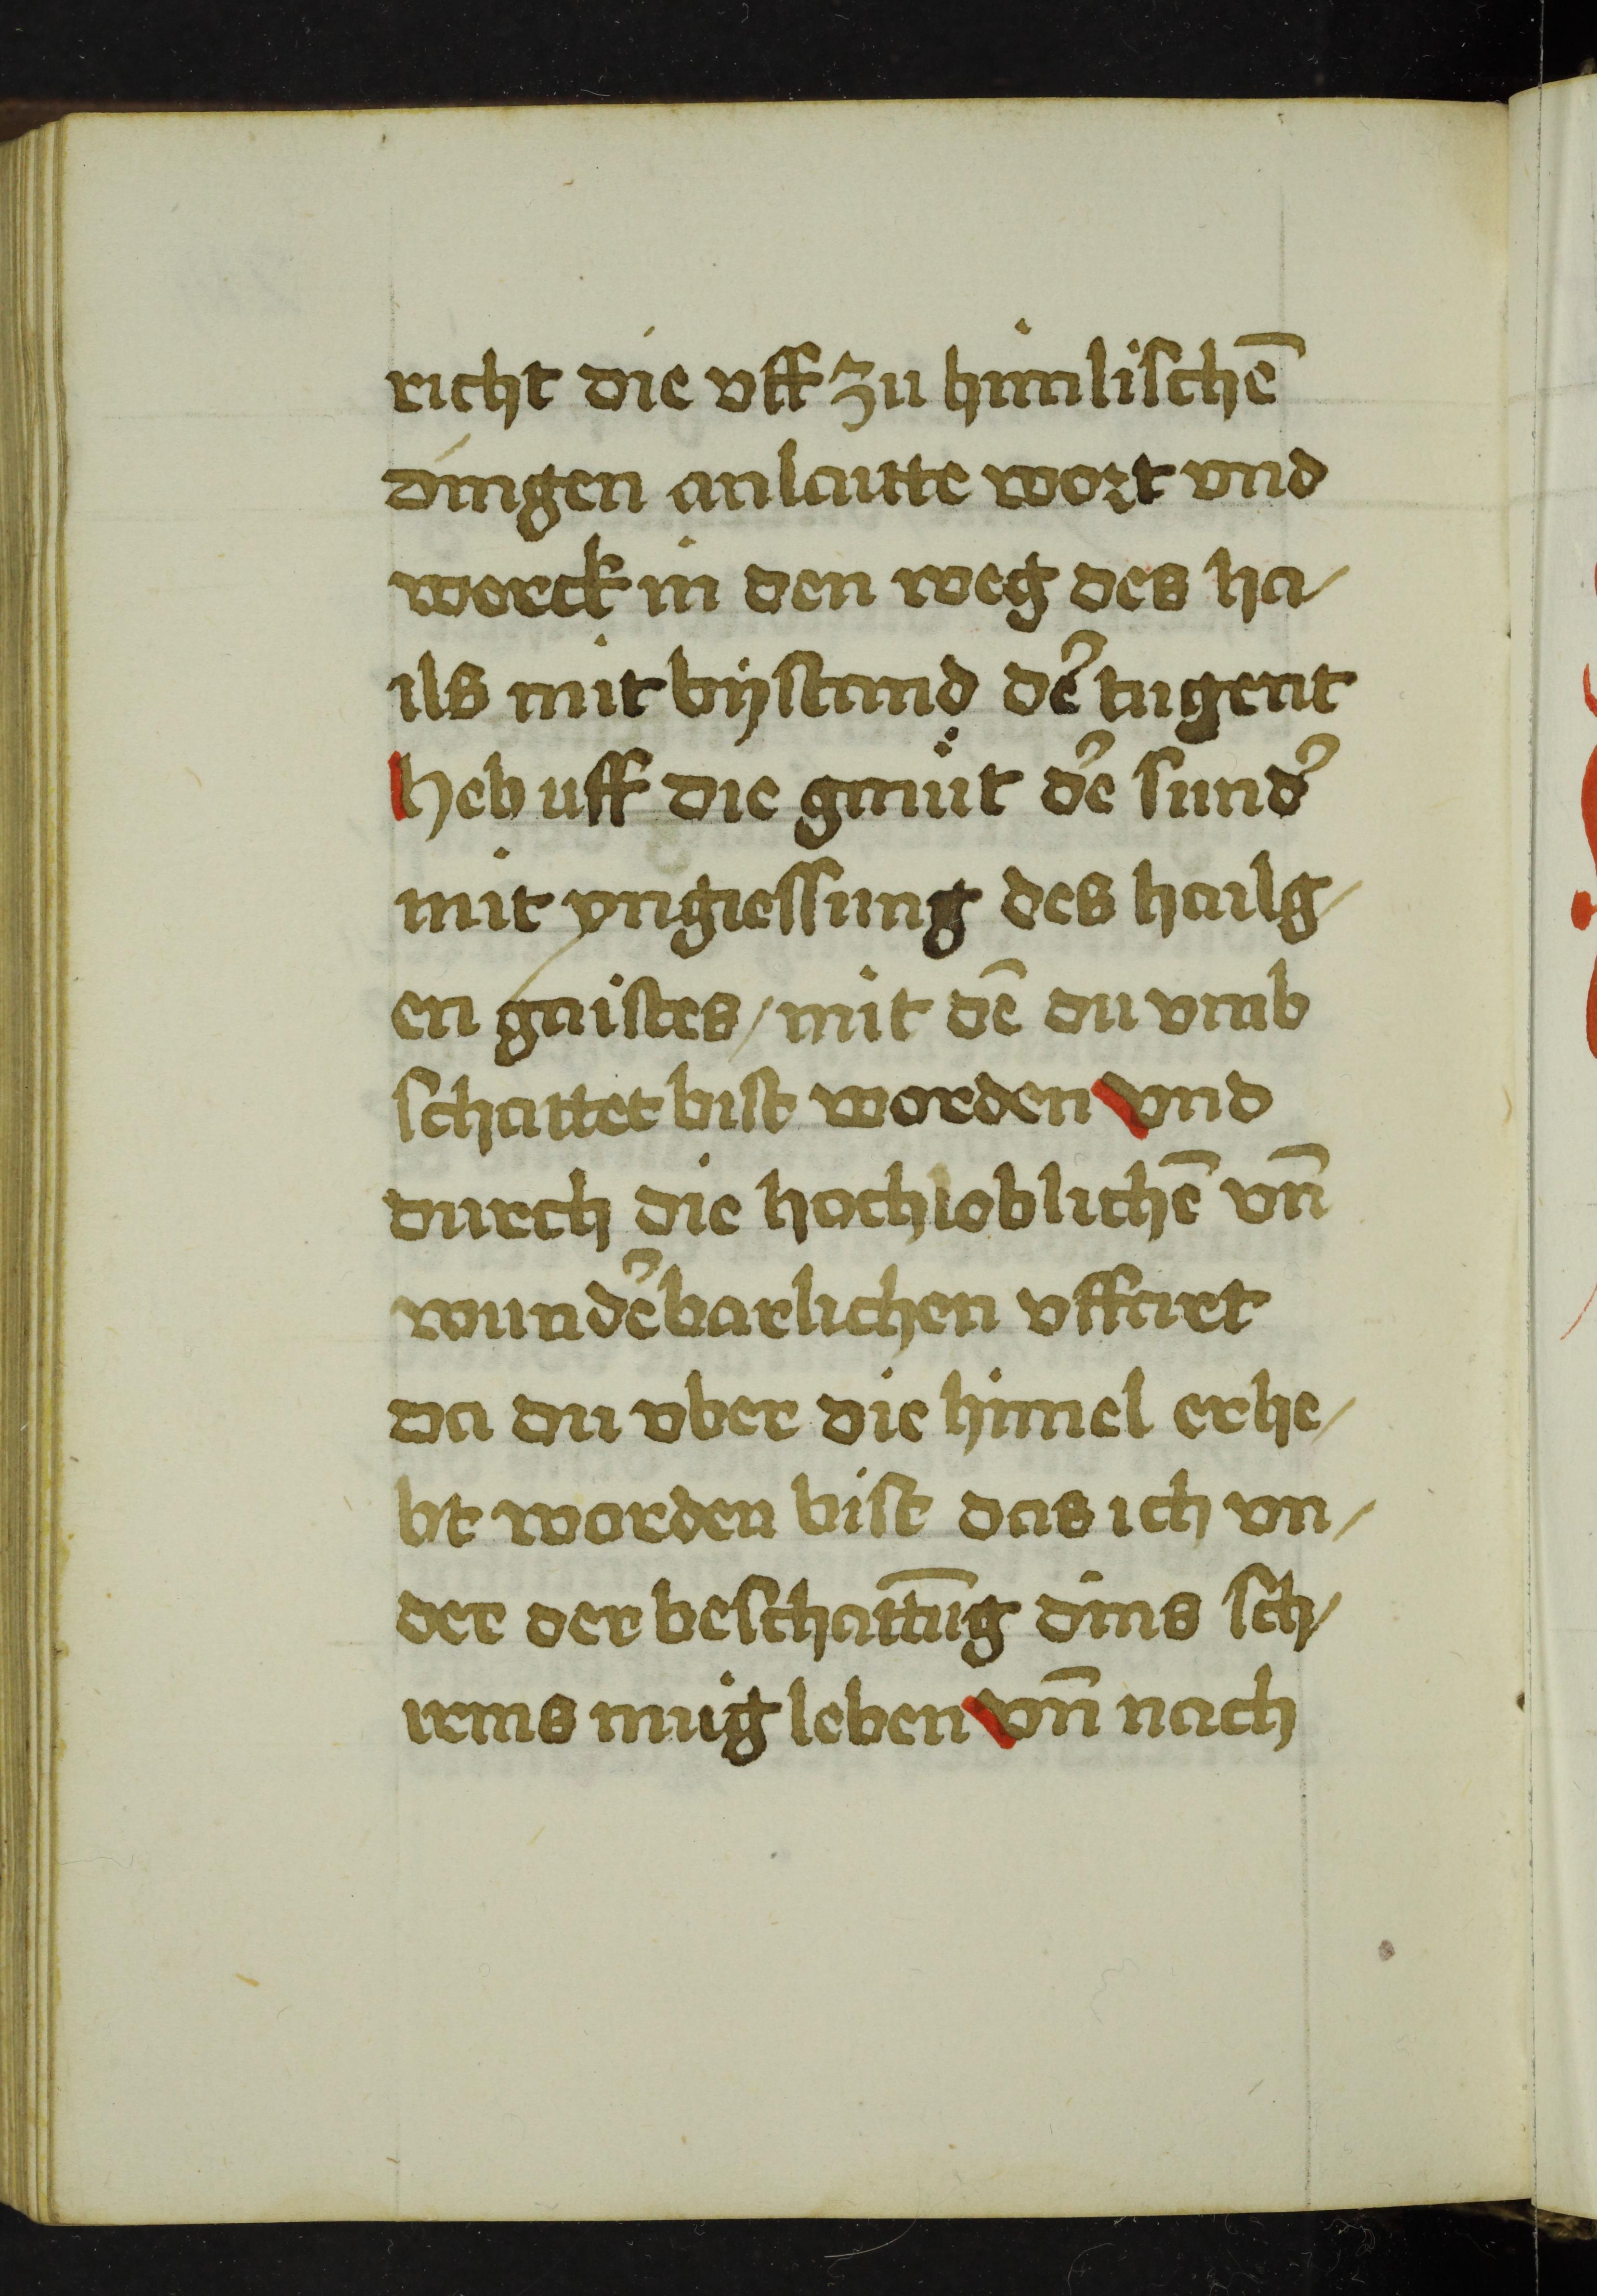 richt die vff zu himlischē
dingen anlaitte wort vnd
werck in den weg des ha/
ils mit bystand de᷑ tugent
heb uff die gmüt de᷑ sund᷑
mit yngiessung des hailg/
en gaistes / mit dē du vmb
schattet bist worden vnd
durch die hochloblichē vn̄
wunde᷑barlichen vffart
da du vber die himel erhe/
bt worden bist das ich vn/
der der beschattūg dins sch/
irms mug leben vn̄ nach